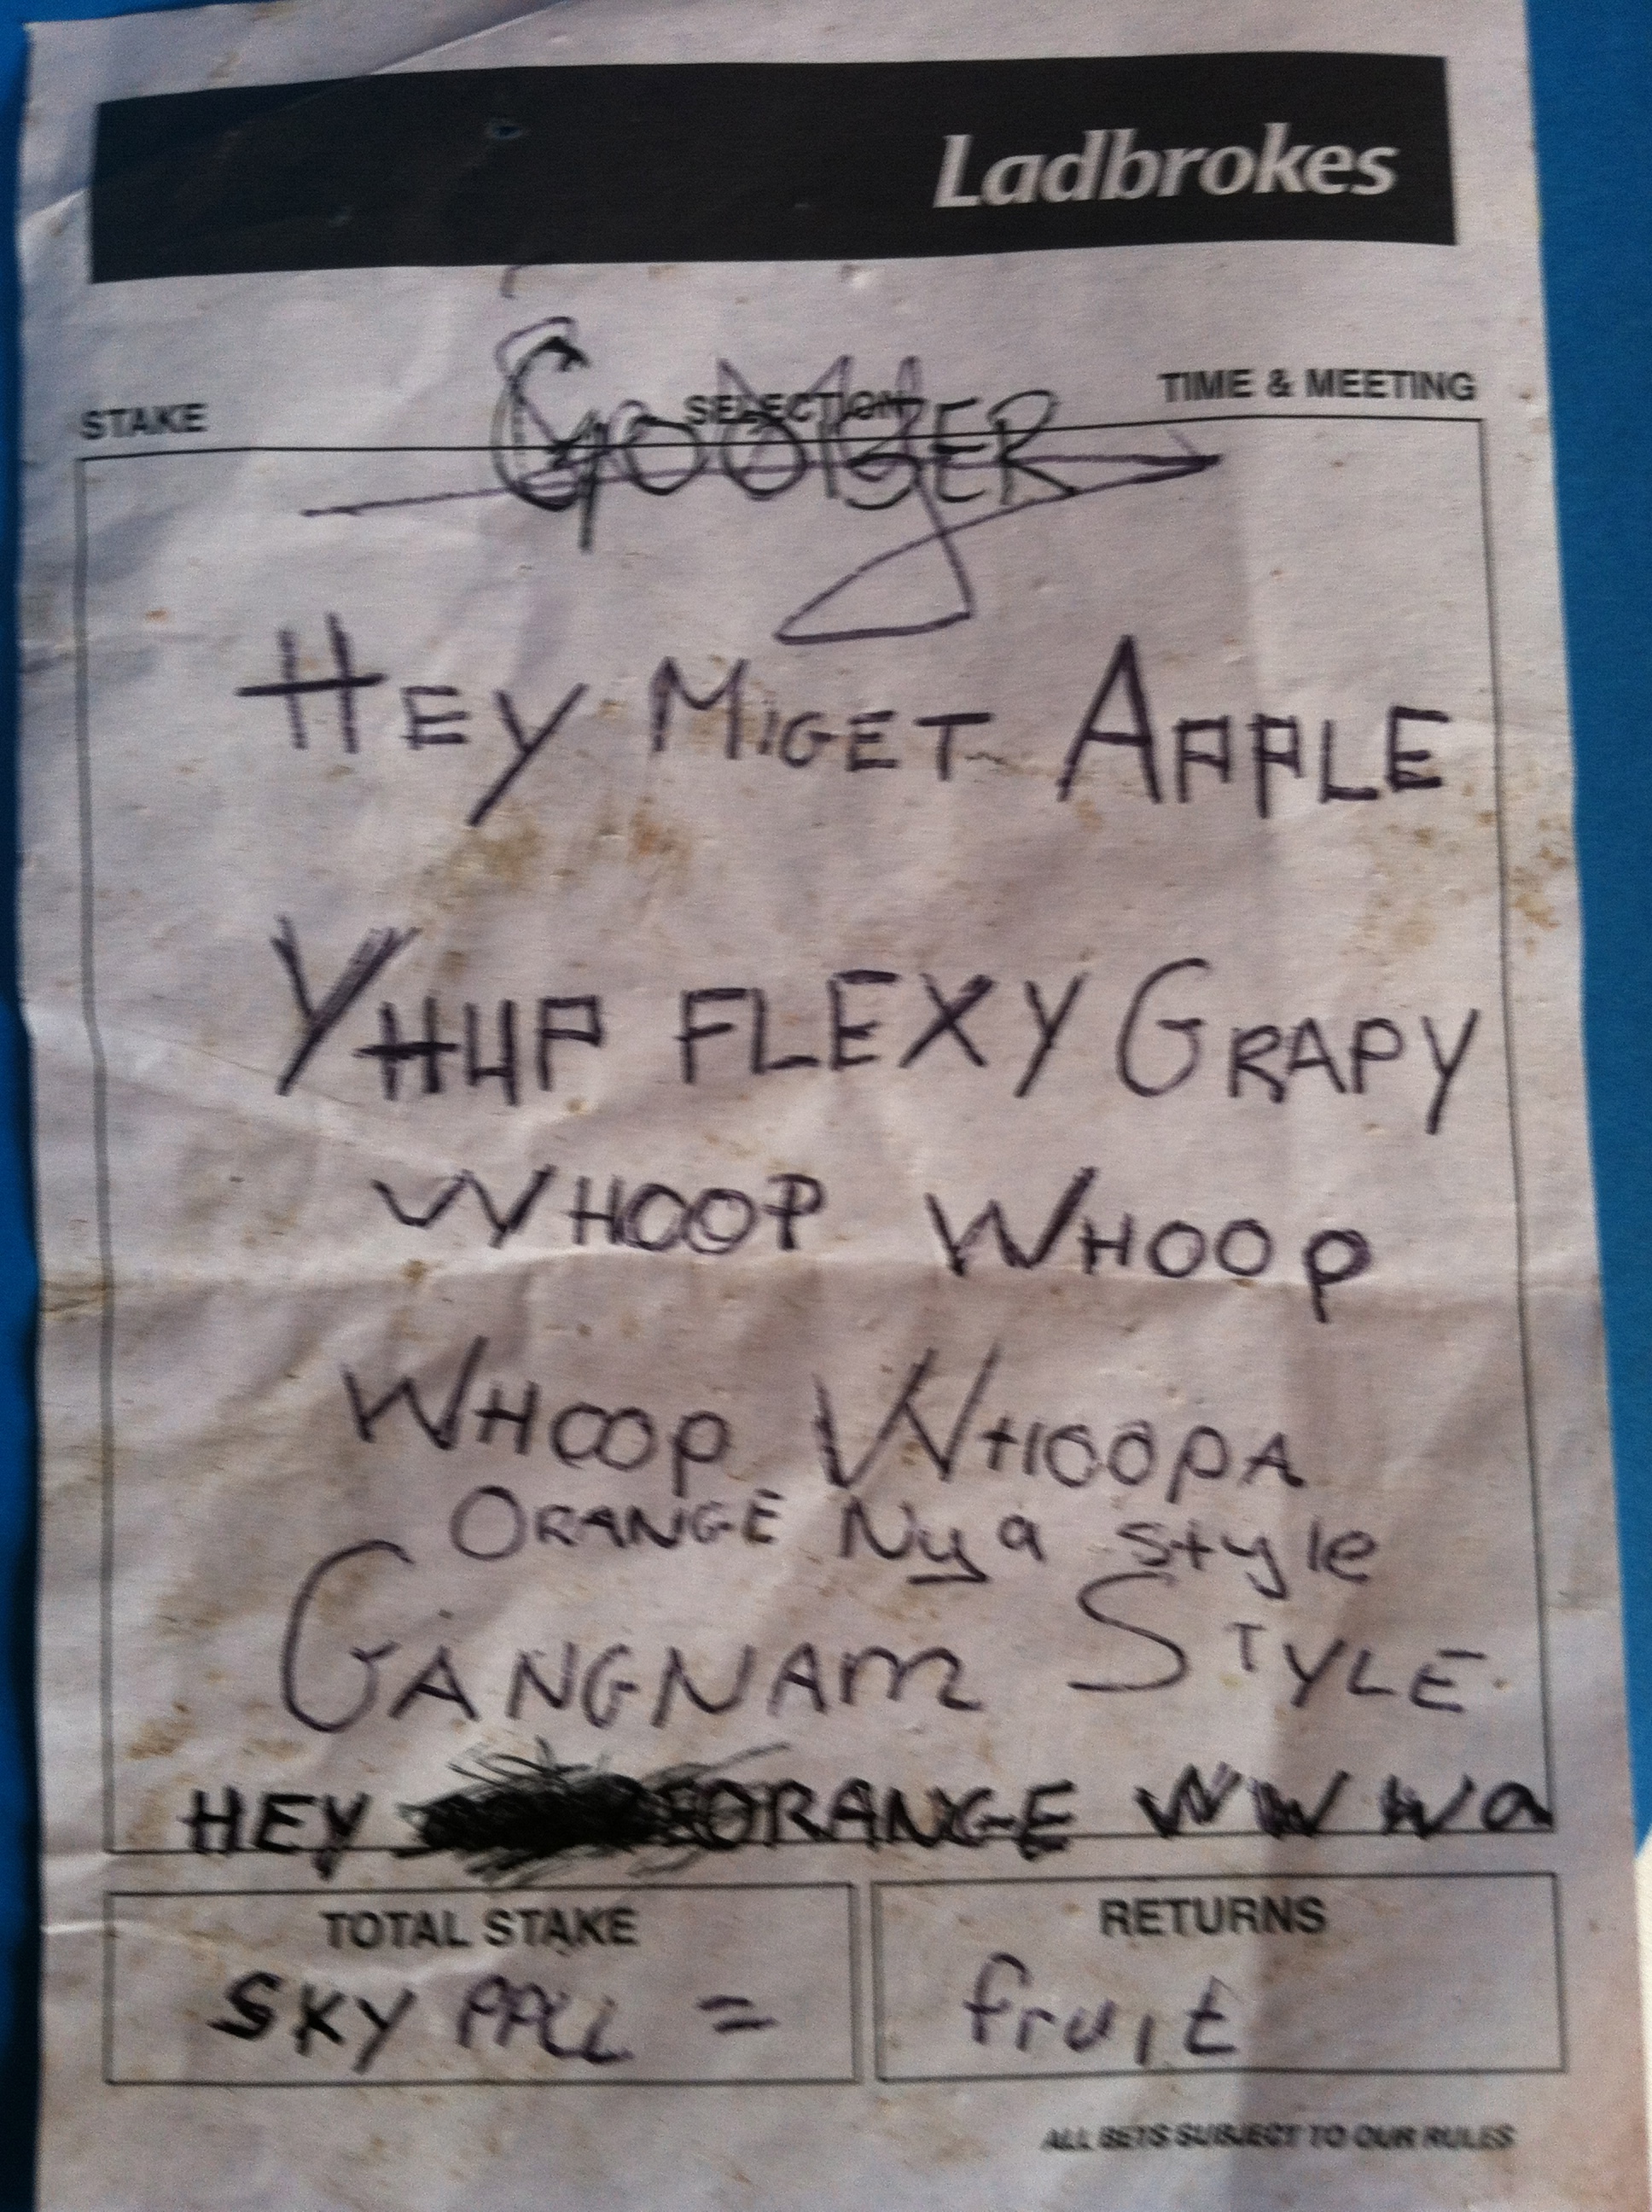 Ladbrokes
STAKE SELECTION TIME & MEETING
HEY MIGET APPLE
YHUP FLEXY GRAPY
WHOOP WHOOP
WHOOP WHOOPA
ORANGE Nya style
GANGNAM STYLE
HEY ORANGE WWWa
TOTAL STAKE RETURNS
SKY =
fruit
ALL BETS SUBJECT TO OUR RULES